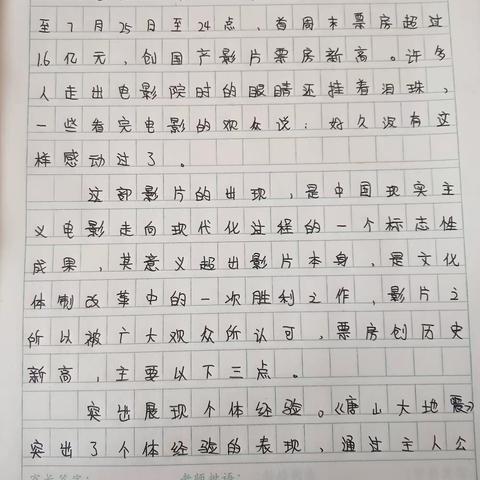 至7月25日至24点，首周末票房超过
1.6亿元，创国产影片票房新高。许多
人走出电影院时的眼睛还挂着泪珠，
一些看完电影的观众说：好久没有这
样感动过了。
这部影片的出现，是中国现实主
义电影走向现代化过程的一个标志性
成果，其意义超出影片本身，是文化
体制改革中的一次胜利之作，影片之
所以被广大观众所认可，票房创历史
新高，主要以下三点。
突出展现个体经验。《唐山大地震》
突出了个体经验的表现，通过主人公